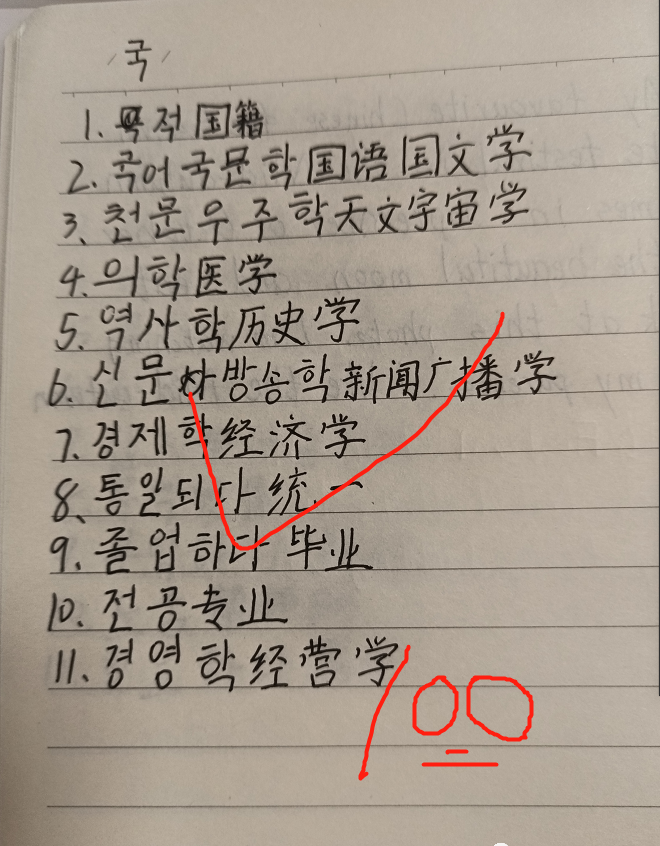 국
1. 목적 国籍
2. 국어국문학 国语国文学
3. 천문우주학 天文宇宙学
4. 의학 医学
5. 역사학 历史学
6. 신문 방송학 新闻广播学
7. 경제학 经济学
8. 통일되다 统一
9. 졸업하다 毕业
10. 전공 专业
11. 경영학 经营学
100